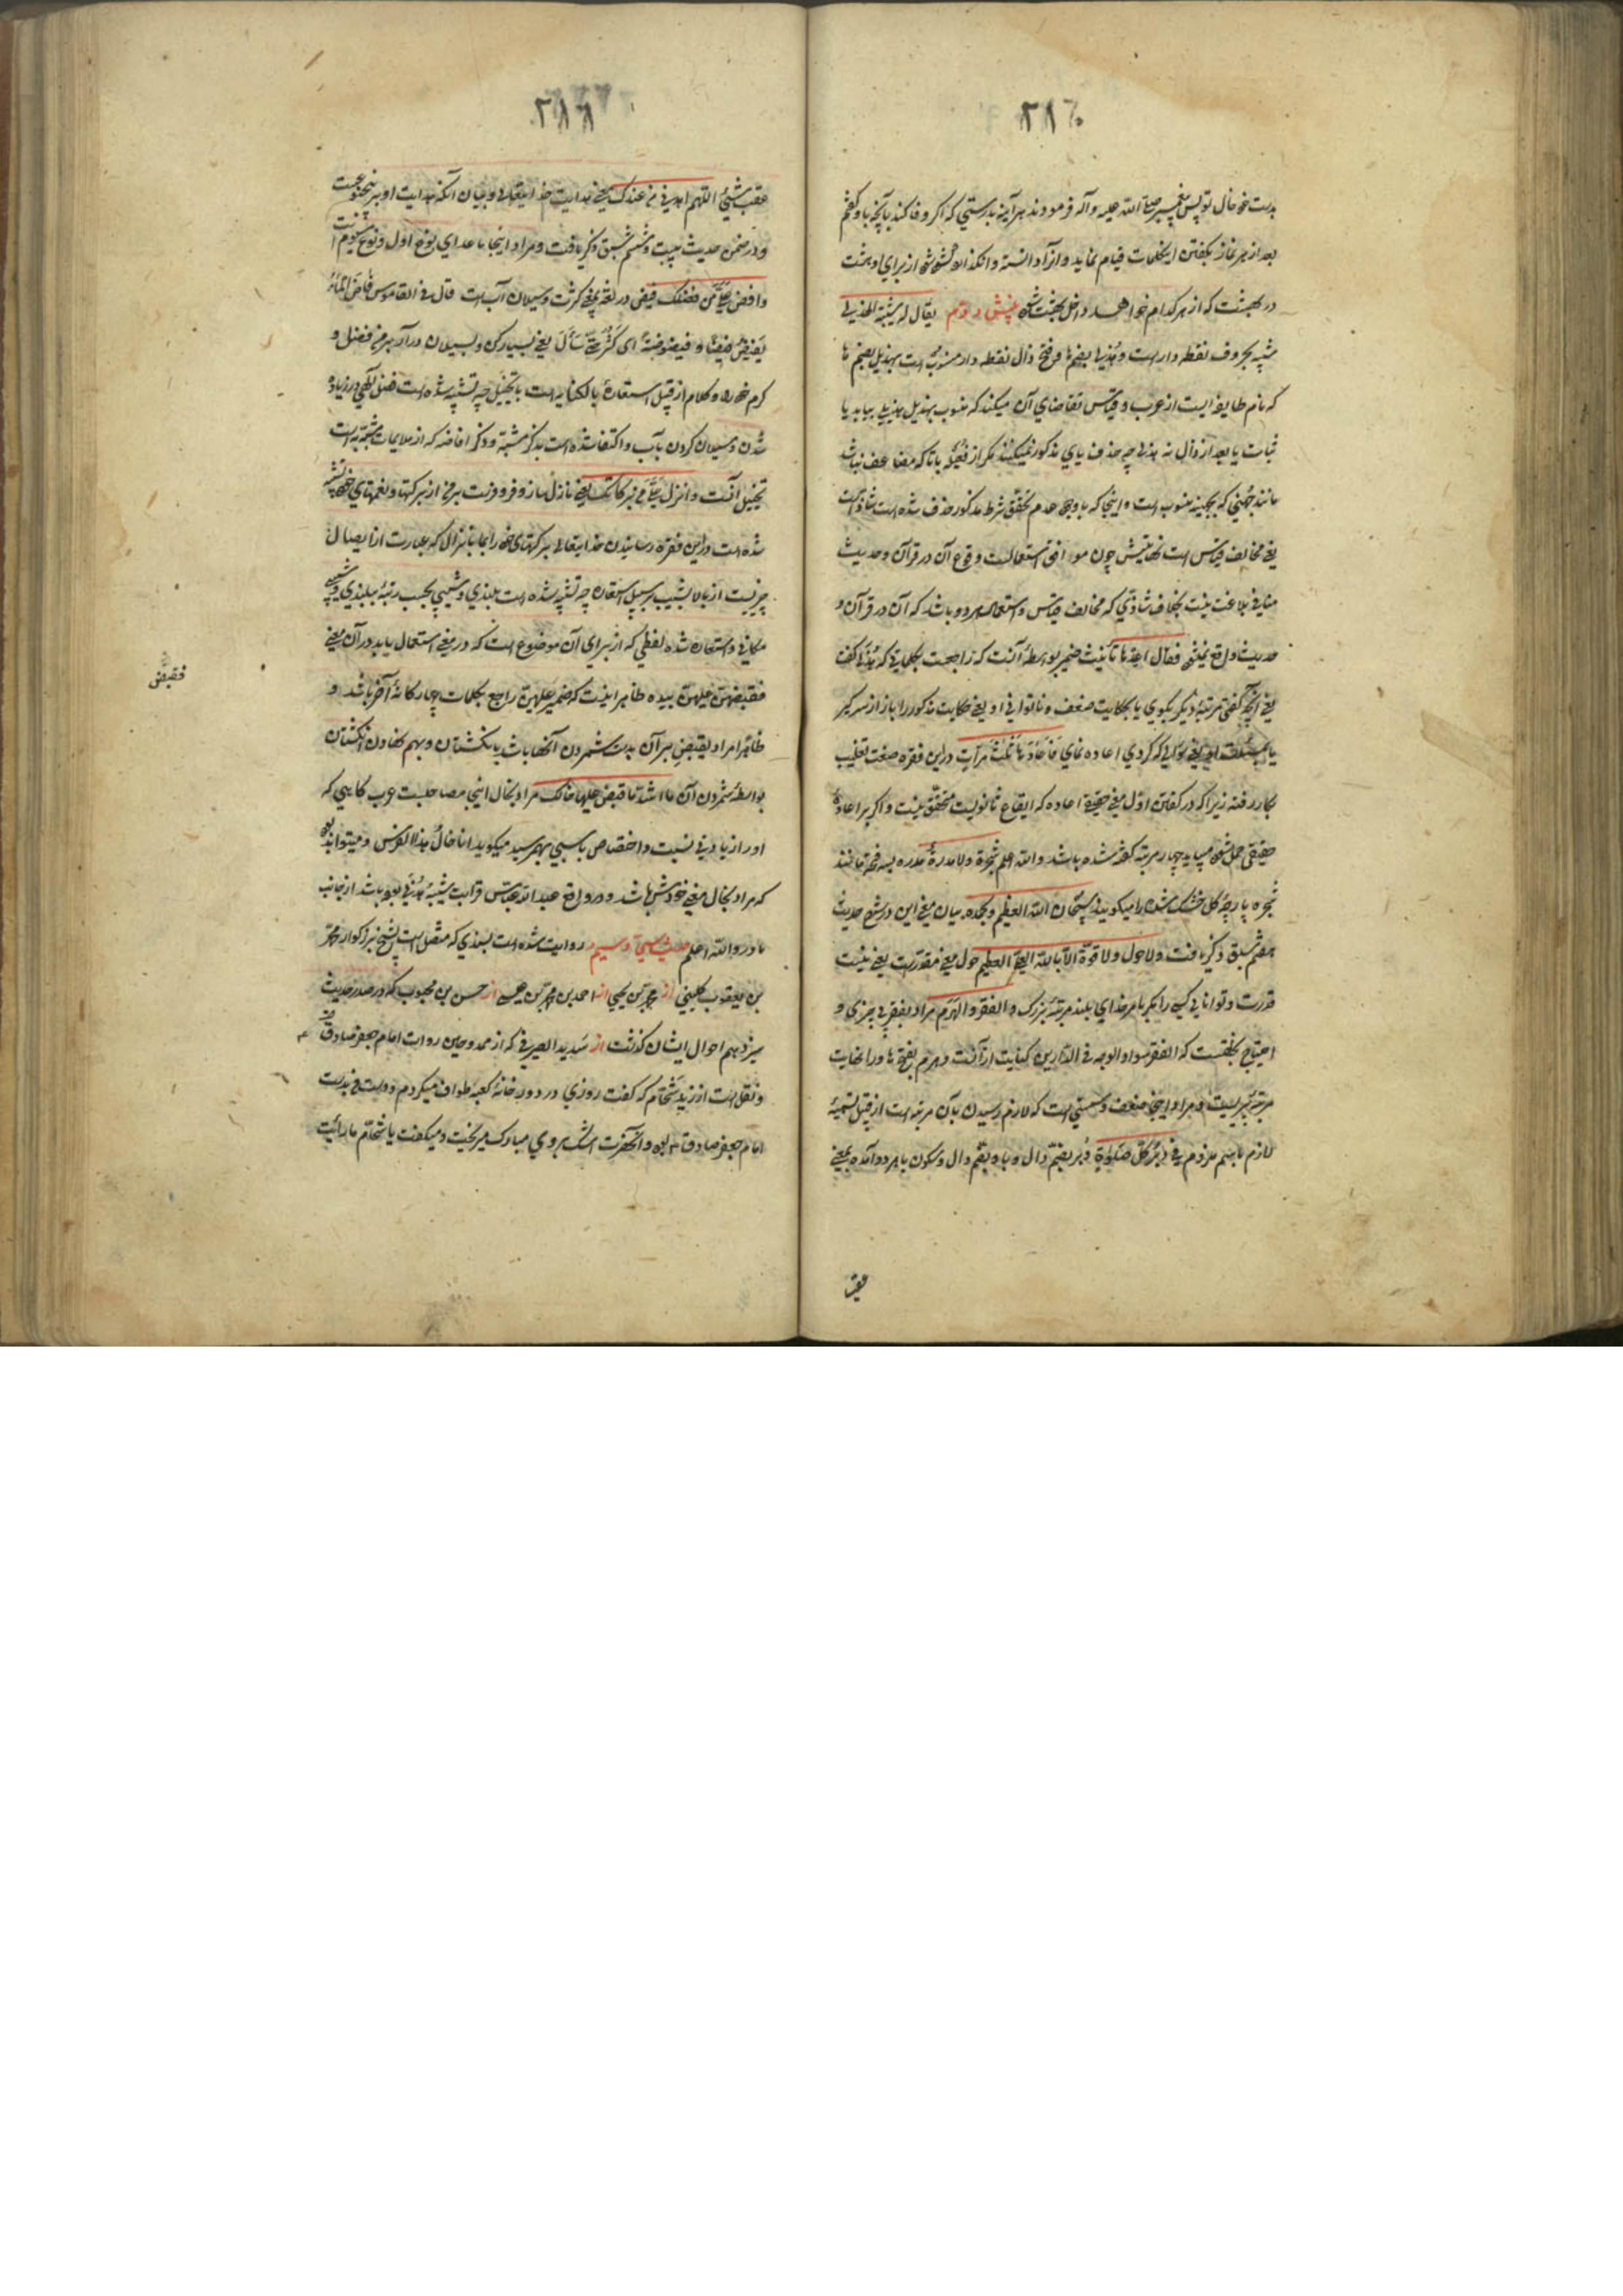 ۲۸۶
بدست خود خال تو پس پیغمبر صلی الله علیه وآله فرمودند هرآینه بدرستی که اگر وفا کند بآنچه باو گفتم
بعد از هر نماز بگفتن این کلمات قیام نماید و از برای او هشت
در بهشت که از هر کدام خواهد داخل بهشت شود یقال له شیبة الهذیل
شیبه بحروف نقطه دار است و هذیل بضم ها و فتح ذال نقطه دار منسوب است بهذیل بضم ها
که نام طایفه ایست از عرب و قیاس تقاضای آن میکند که منسوب بهذیل هذیلی بیاید با
ثبات یا بعد از ذال نه هذلی چه حذف یای مذکور نمیکنند مگر از فعیله با تا که مضاعف نباشد
مانند جهنی که بجهینه منسوب است و اینجا که با وجود عدم تحقق شرط مذکور حذف شده است شاذ است
یعنی مخالف قیاس است نهایتش چون موافق استعمالست وقوع آن در قرآن و حدیث
منافی بلاغت نیست بخلاف شاذی که مخالف قیاس و استعمال هر دو باشد که آن در قرآن و
حدیث واقع نمیشود فقال اعدها تأنیث ضمیر بواسطه آنست که راجعست بکلماتی که هذلی گفت
یعنی آنچه گفتی مرتبه دیگر بگوی یا بحکایت ضعف و ناتوانی او یعنی حکایت مذکور را باز از سر گیر
یا یعنی سؤالی که کردی اعاده نمای فاعادها ثلث مرات در این فقره صنعت تغلیب
بکار رفته زیرا که در گفتن اول معنی حقیقی اعاده که ایقاع ثانویست متحقق نیست و اگر بر اعاده
حقیقی حمل شود میباید چهار مرتبه گفته شده باشد والله اعلم شجرة ولا مدرة مدره بسه فتحه مانند
شجره پارچه گل خشک شده را میگویند سبحان الله العظیم وبحمده بیان معنی این در شرح حدیث
هفتم سبق ذکر یافت ولا حول ولا قوة الا بالله العلی العظیم حول بمعنی قدرتست یعنی نیست
قدرت و توانائی کسی را مگر بامر خدای بلند مرتبه بزرگ والفقر والهرم مراد بفقر بی چیزی و
احتیاج بخلقست که الفقر سواد الوجه فی الدارین کنایت از آنست و هرم بفتح ها و را نهایت
مرتبه پیریست و مراد اینجا ضعف و سستی است که لازم رسیدن بآن مرتبه است از قبیل تسمیه
لازم باسم ملزوم فی دبر کل صلوة دبر بضم دال و با و بضم دال و سکون با هر دو آمده بمعنی
عقب
۲۸۷
عقب شیئ اللهم اهدنی من عندک یعنی هدایت خدایتعالی و بیان آنکه هدایت او بر پنج نوعست
و در ضمن حدیث بیست و ششم سبق ذکر یافت و مراد اینجا ماعدای نوع اول و نوع سیوم است
وافض علی من فضلک فیض در لغة بمعنی کثرت و سیلان آب است قال فی القاموس فاض الماء
یفیض فیضا و فیضوضة ای کثر حتی سال یعنی بسیار کن و بسیلان درآر بر من فضل و
کرم خود را و کلام از قبیل استعارۀ بالکنایه است با تخییل چه تشبیه شده است فضل الهی در زیاده
شدن و سیلان کردن بآب و اکتفا شده است بذکر مشبه و ذکر افاضه که از ملایمات مشبه به است
تخییل آنست وانزل علی من برکاتک یعنی نازل ساز و فرو فرست بر من از برکتها و نعمتهای خود تشبیه
شده است در این فقره رسانیدن خدایتعالی برکتهای خود را بما بانزال که عبارت از ایصال
چیزیست از بالا بشیب بر سبیل استعاره چه تشبیه شده است بلندی و شیبی بحسب رتبه ببلندی و شیبی
مکانی و استعاره شده لفظی که از برای آن موضوع است که در معنی استعمال یابد در آن معنی
فقبضهن علیهن بیده ظاهر اینست که ضمیر علیهن راجع بکلمات چهارگانه آخر باشد و
ظاهرا مراد بقبض بر آن بدست شمردن آنها باشد بانگشتان و بهم نهادن انگشتان
بواسطه شمردن آن ما اشد ما قبض علیها خالک مراد بخال اینجا مصاحبست عرب کاهی که
او را زیادتی نسبت و اختصاص با کسی بهم رسید میگوید انا خال هذا الفرس و میتواند بود
که مراد بخال معنی خودش باشد و در واقع عبدالله عباس قرابت شیبه هذلی بوده باشد از جانب
مادر والله اعلم حدیث سی و سیم روایت شده است بسندی که متصل است بشیخ بزرگوار محمد
بن یعقوب کلینی از محمد بن یحیی از احمد بن محمد بن عیسی از حسن بن محبوب که در صدر حدیث
سیزدهم احوال ایشان گذشت از سدید الصیرفی که از ممدوحین روات امام جعفر صادق
و نقل است از زید شحام که گفت روزی در دور خانه کعبه طواف میکردم و دستم در دست
امام جعفر صادق بود و آنحضرت اشک بر روی مبارک میریخت و میگفت یا شحام ما رأیت
فقبض